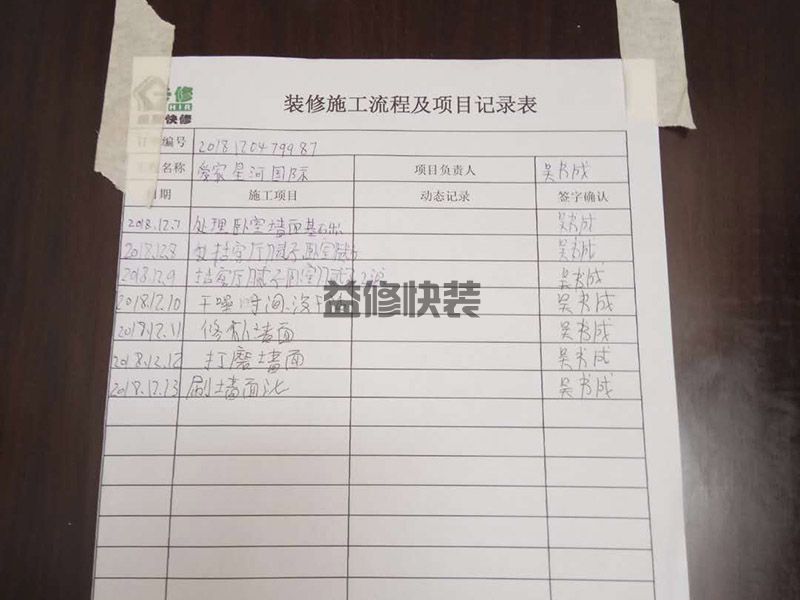 修
快修
装修施工流程及项目记录表
编号 2018120479987
名称 爱家星河国际 项目负责人 吴书成
日期 施工项目 动态记录 签字确认
2018.12.7 处理卧室墙面基础 吴书成
2018.12.8 客厅腻子卧室 吴书成
2018.12.9 客厅腻子卧室 吴书成
2018.12.10 干燥时间 吴书成
2018.12.11 修补墙面 吴书成
2018.12.12 打磨墙面 吴书成
2018.12.13 刷墙面 吴书成
益修快装